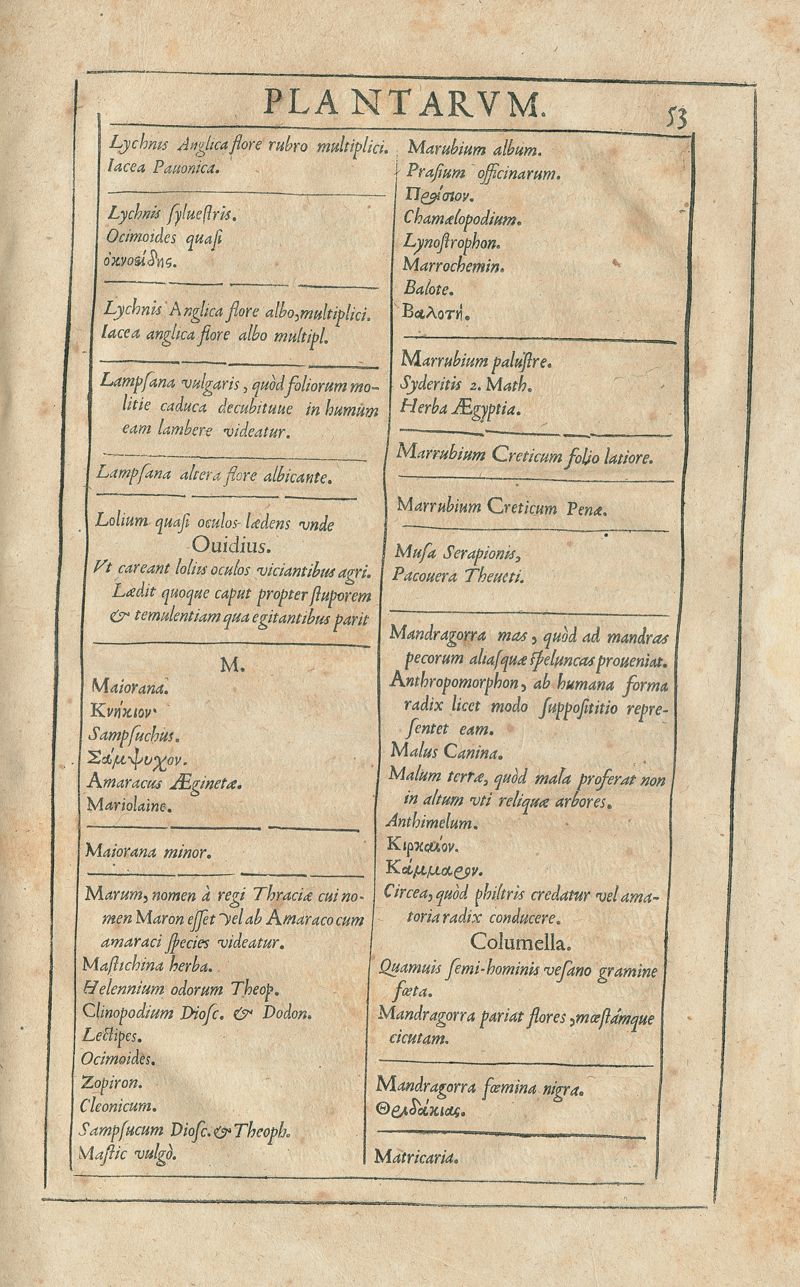 PLANTARVM.
53
Lychnis Anglica flore rubro multiplici.
Iacea Pauonica.
Lychnis ſylueſtris.
Ocimoides quaſi
ὀκνοειδὴς.
Lychnis Anglica flore albo, multiplici.
Iacea anglica flore albo multipl.
Lampſana vulgaris, quòd foliorum mo-
litie caduca decubituue in humum
eam lambere videatur.
Lampſana altera flore albicante.
Lolium quaſi oculos lædens vnde
Ouidius.
Vt careant loliis oculos viciantibus agri.
Lædit quoque caput propter ſtuporem
& temulentiam qua egitantibus parit
M.
Maiorana.
Κνήκιον·
Sampſuchus.
Σάμψυχον.
Amaracus Æginetæ.
Mariolaine.
Maiorana minor.
Marum, nomen à regi Thraciæ cui no-
men Maron eſſet vel ab Amaraco cum
amaraci ſpecies videatur.
Maſtichina herba.
Helennium odorum Theop.
Clinopodium Dioſc. & Dodon.
Lectipes.
Ocimoides.
Zopiron.
Cleonicum.
Sampſucum Dioſc. & Theoph.
Maſtic vulgò.
Marubium album.
Praſium officinarum.
Πράσιον.
Chamælopodium.
Lynoſtrophon.
Marrochemin.
Balote.
Βαλοτή.
Marrubium paluſtre.
Syderitis 2. Math.
Herba Ægyptia.
Marrubium Creticum folio latiore.
Marrubium Creticum Penæ.
Muſa Serapionis,
Pacouera Theueti.
Mandragorra mas, quòd ad mandras
pecorum aliaſquæ ſpeluncas proueniat.
Anthropomorphon, ab humana forma
radix licet modo ſuppoſititio repre-
ſentet eam.
Malus Canina.
Malum terræ, quòd mala proferat non
in altum vti reliquæ arbores.
Anthimelum.
Κιρκαῖον.
Κάμμαρον.
Circea, quòd philtris credatur vel ama-
toria radix conducere.
Columella.
Quamuis ſemi-hominis veſano gramine
fœta.
Mandragorra pariat flores, mœſtámque
cicutam.
Mandragorra fœmina nigra.
Θριδάκιας.
Matricaria.